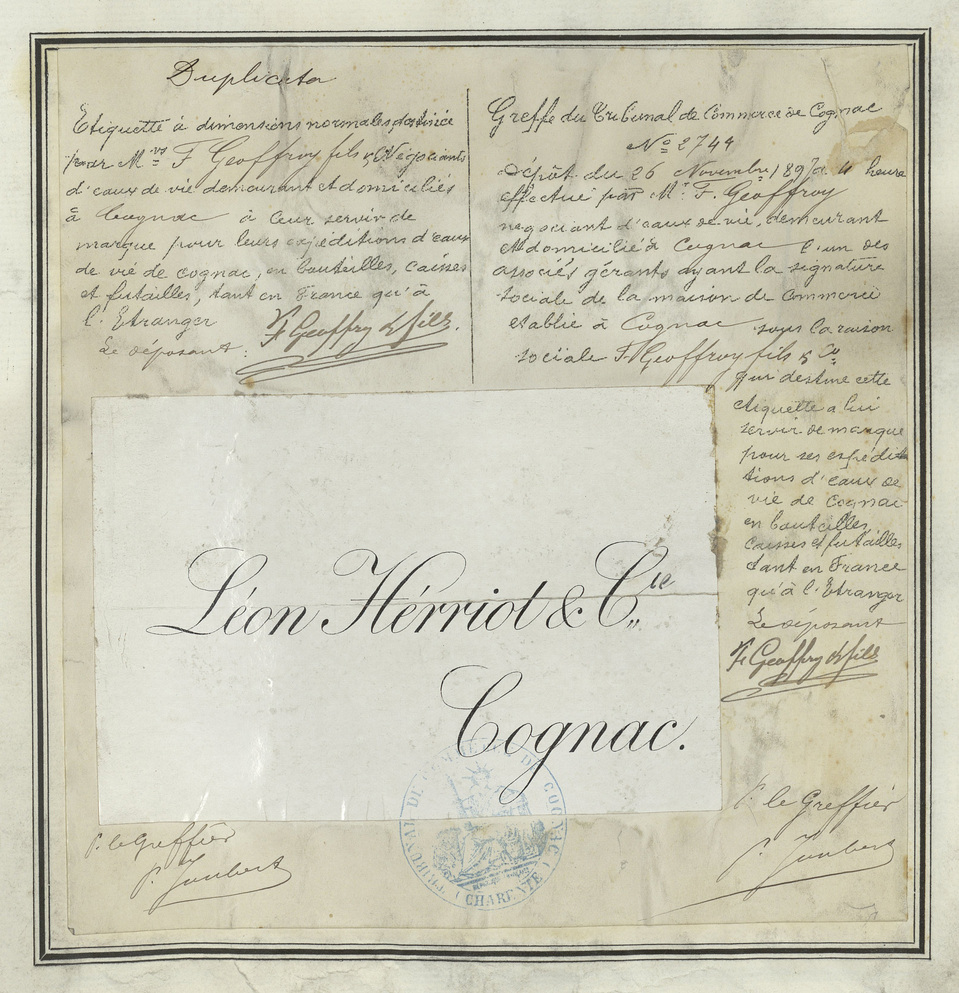 Duplicata
Etiquette à dimensions normales destinée
par M.rs F Geoffroy fils & Co Négociants
d'eaux de vie demeurant et domiciliés
à Cognac à leur servir de
marque pour leurs expéditions d'eaux
de vie de cognac, en bouteilles, caisses
et futailles, tant en France qu'à
l'Etranger
Le déposant: F Geoffroy & fils.
Greffe du Tribunal de Commerce de Cognac
No 2744
Dépôt du 26 Novembre 1897 à 4 heure
effectué par Mr F. Geoffroy
negociant d'eaux de vie, demeurant
et domicilié à Cognac l'un des
associés gérants ayant la signature
sociale de la maison de commerce
etablie à Cognac sous la raison
sociale F Geoffroy fils & Co
qui destine cette
etiquette a lui
servir de marque
pour ses expédi
tions d'eaux de
vie de Cognac
en bouteilles,
caisses et futailles
tant en France
qu'à l'Etranger
Le déposant
F Geoffroy & fils
Léon Hérriot & Cie
Cognac.
P. le Greffier
P. Joubert
TRIBUNAL DE COMMERCE DE COGNAC (CHARENTE)
P. le Greffier
P. Joubert